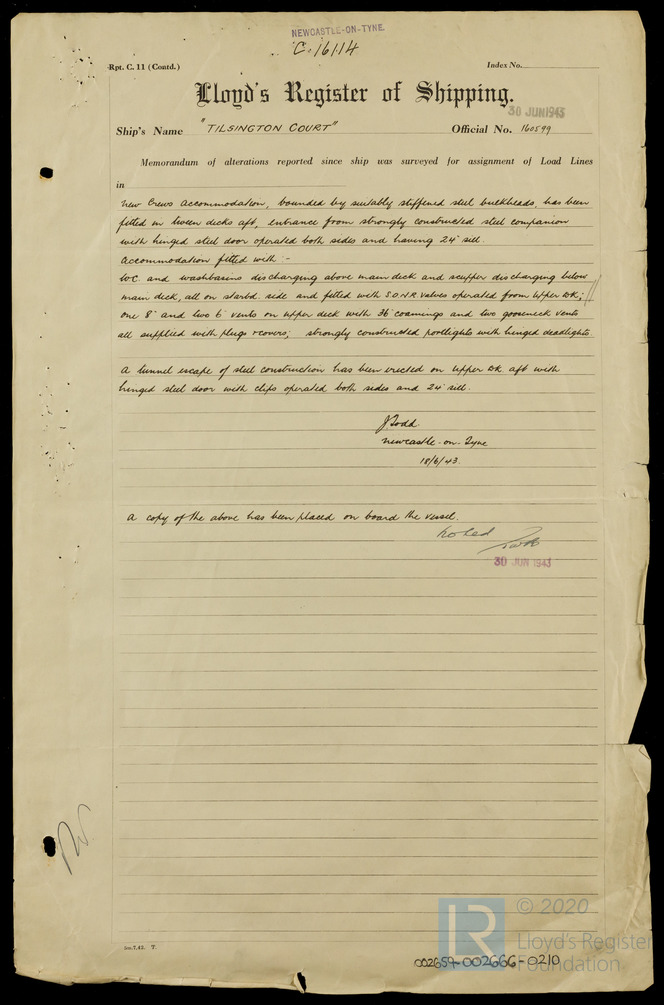 NEWCASTLE-ON-TYNE.
C. 16114
Rpt. C. 11 (Contd.)
Index No.
Lloyd's Register of Shipping.
30 JUN 1943
Ship's Name "TILSINGTON COURT" Official No. 160599
Memorandum of alterations reported since ship was surveyed for assignment of Load Lines
in
New Crews accommodation, bounded by suitably stiffened steel bulkheads, has been
fitted in tween decks aft, entrance from strongly constructed steel companion
with hinged steel door operated both sides and having 24" sill.
Accommodation fitted with :-
W.C. and washbasins discharging above main deck and scupper discharging below
main deck, all on starbd. side and fitted with S.D.N.R. valves operated from upper dk;
one 8" and two 6" vents on upper deck with 36" coamings and two gooseneck vents
all supplied with plugs & covers; strongly constructed portlights with hinged deadlights.
A tunnel escape of steel construction has been erected on upper dk. aft with
hinged steel door with clips operated both sides and 24" sill.
J. Todd.
Newcastle-on-Tyne
18/6/43.
A copy of the above has been placed on board the vessel.
Noted
30 JUN 1943
2m.7,42. T.
LR
© 2020
Lloyd's Register
Foundation
002659-002666-0210